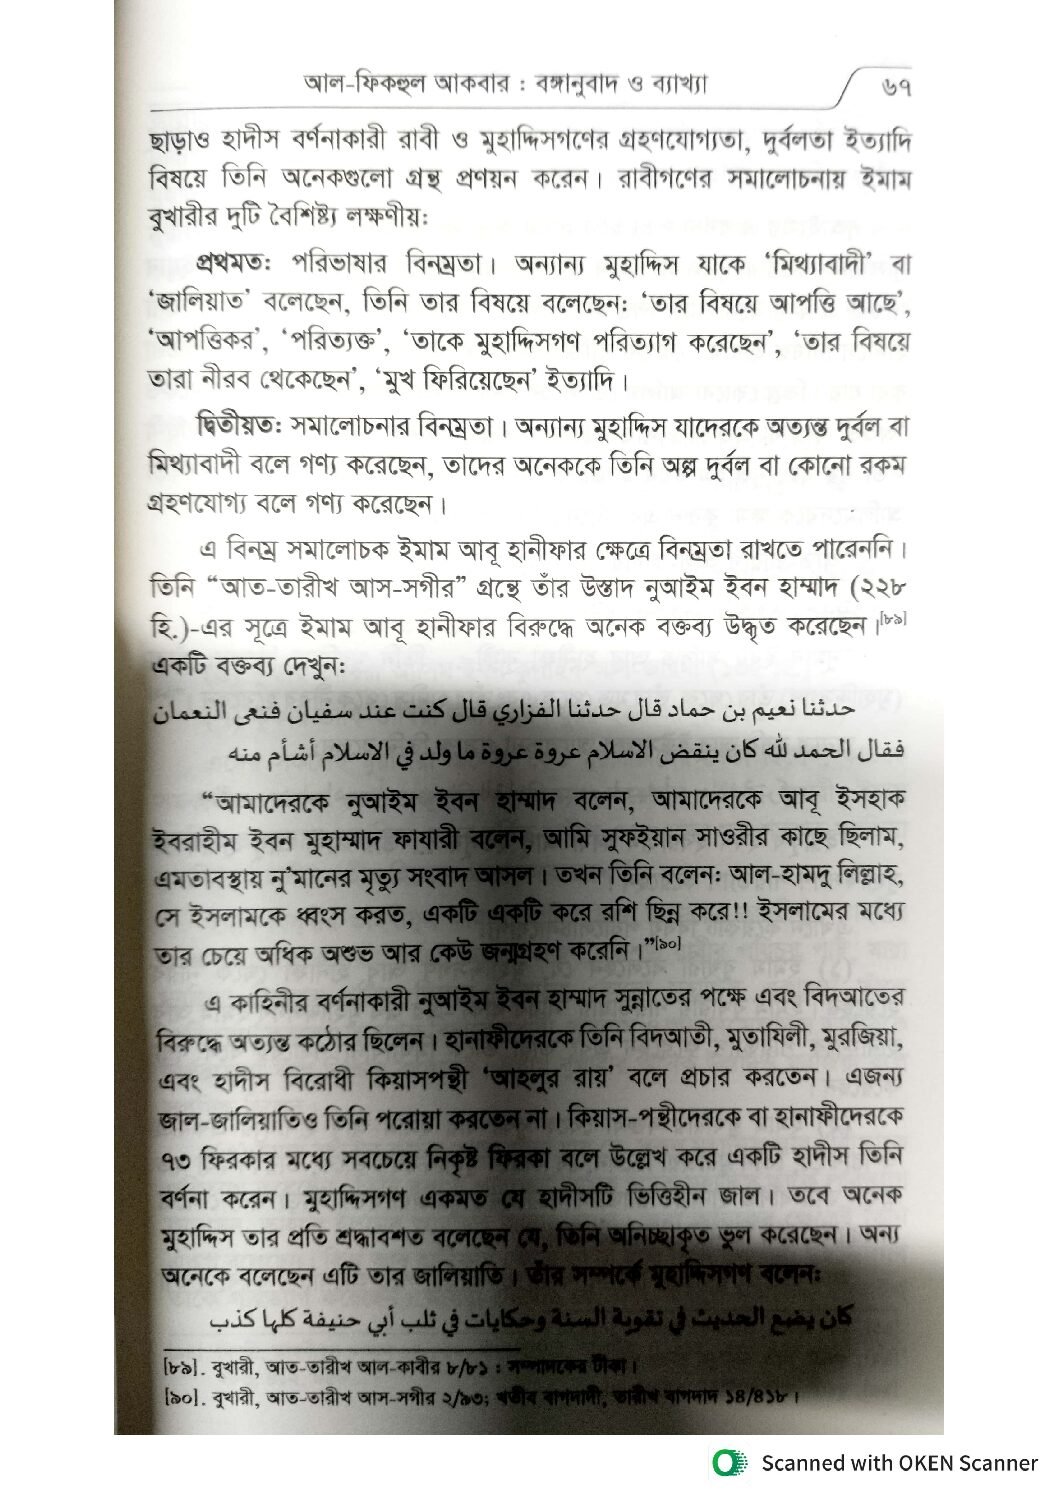 আল-ফিকহুল আকবার : বঙ্গানুবাদ ও ব্যাখ্যা
৬৭
ছাড়াও হাদীস বর্ণনাকারী রাবী ও মুহাদ্দিসগণের গ্রহণযোগ্যতা, দুর্বলতা ইত্যাদি
বিষয়ে তিনি অনেকগুলো গ্রন্থ প্রণয়ন করেন। রাবীগণের সমালোচনায় ইমাম
বুখারীর দুটি বৈশিষ্ট্য লক্ষণীয়:
প্রথমত: পরিভাষার বিনম্রতা। অন্যান্য মুহাদ্দিস যাকে ‘মিথ্যাবাদী’ বা
‘জালিয়াত’ বলেছেন, তিনি তার বিষয়ে বলেছেন: ‘তার বিষয়ে আপত্তি আছে’,
‘আপত্তিকর’, ‘পরিত্যক্ত’, ‘তাকে মুহাদ্দিসগণ পরিত্যাগ করেছেন’, ‘তার বিষয়ে
তারা নীরব থেকেছেন’, ‘মুখ ফিরিয়েছেন’ ইত্যাদি।
দ্বিতীয়ত: সমালোচনার বিনম্রতা। অন্যান্য মুহাদ্দিস যাদেরকে অত্যন্ত দুর্বল বা
মিথ্যাবাদী বলে গণ্য করেছেন, তাদের অনেককে তিনি অল্প দুর্বল বা কোনো রকম
গ্রহণযোগ্য বলে গণ্য করেছেন।
এ বিনম্র সমালোচক ইমাম আবূ হানীফার ক্ষেত্রে বিনম্রতা রাখতে পারেননি।
তিনি “আত-তারীখ আস-সগীর” গ্রন্থে তাঁর উস্তাদ নুআইম ইবন হাম্মাদ (২২৮
হি.)-এর সূত্রে ইমাম আবূ হানীফার বিরুদ্ধে অনেক বক্তব্য উদ্ধৃত করেছেন।[৮৯]
একটি বক্তব্য দেখুন:
حدثنا نعيم بن حماد قال حدثنا الفزاري قال كنت عند سفيان فنعى النعمان
فقال الحمد لله كان ينقض الاسلام عروة عروة ما ولد في الاسلام أشأم منه
“আমাদেরকে নুআইম ইবন হাম্মাদ বলেন, আমাদেরকে আবূ ইসহাক
ইবরাহীম ইবন মুহাম্মাদ ফাযারী বলেন, আমি সুফইয়ান সাওরীর কাছে ছিলাম,
এমতাবস্থায় নু’মানের মৃত্যু সংবাদ আসল। তখন তিনি বলেন: আল-হামদু লিল্লাহ,
সে ইসলামকে ধ্বংস করত, একটি একটি করে রশি ছিন্ন করে!! ইসলামের মধ্যে
তার চেয়ে অধিক অশুভ আর কেউ জন্মগ্রহণ করেনি।”[৯০]
এ কাহিনীর বর্ণনাকারী নুআইম ইবন হাম্মাদ সুন্নাতের পক্ষে এবং বিদআতের
বিরুদ্ধে অত্যন্ত কঠোর ছিলেন। হানাফীদেরকে তিনি বিদআতী, মুতাযিলী, মুরজিয়া,
এবং হাদীস বিরোধী কিয়াসপন্থী ‘আহলুর রায়’ বলে প্রচার করতেন। এজন্য
জাল-জালিয়াতিও তিনি পরোয়া করতেন না। কিয়াস-পন্থীদেরকে বা হানাফীদেরকে
৭৩ ফিরকার মধ্যে সবচেয়ে নিকৃষ্ট ফিরকা বলে উল্লেখ করে একটি হাদীস তিনি
বর্ণনা করেন। মুহাদ্দিসগণ একমত যে হাদীসটি ভিত্তিহীন জাল। তবে অনেক
মুহাদ্দিস তার প্রতি শ্রদ্ধাবশত বলেছেন যে, তিনি অনিচ্ছাকৃত ভুল করেছেন। অন্য
অনেকে বলেছেন এটি তার জালিয়াতি। তাঁর সম্পর্কে মুহাদ্দিসগণ বলেন:
كان يضع الحديث في تقوية السنة وحكايات في ثلب أبي حنيفة كلها كذب
[৮৯]. বুখারী, আত-তারীখ আল-কাবীর ৮/৮১ : সম্পাদকের টীকা।
[৯০]. বুখারী, আত-তারীখ আস-সগীর ২/৯৩; খতীব বাগদাদী, তারীখ বাগদাদ ১৪/৪১৮।
Scanned with OKEN Scanner